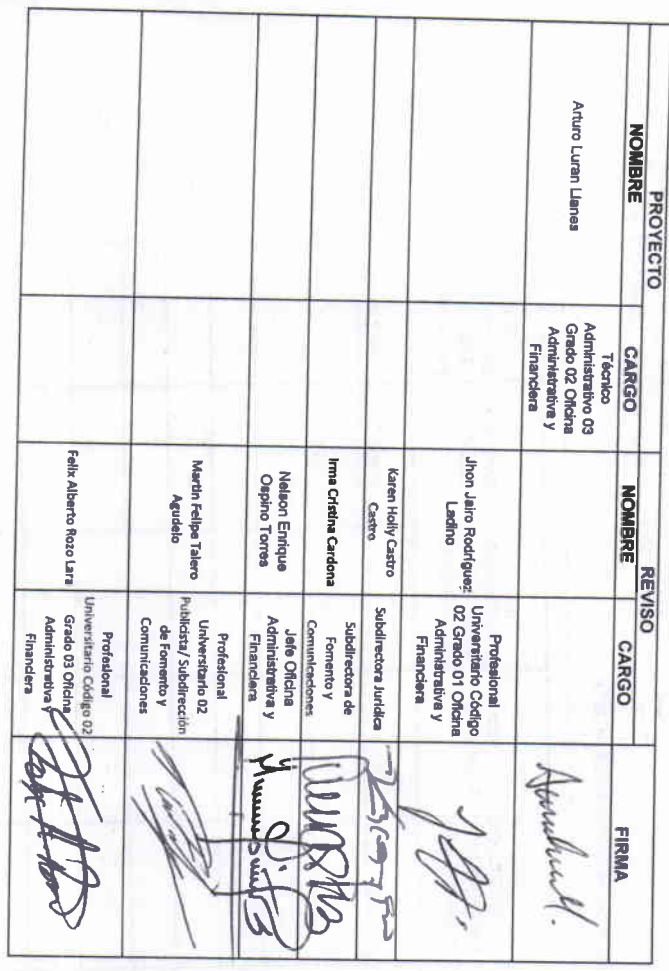 PROYECTO REVISO FIRMA
NOMBRE CARGO NOMBRE CARGO
Arturo Luran Llanes
Técnico
Administrativo 03
Grado 02 Oficina
Administrativa y
Financiera
Jhon Jairo Rodríguez
Ladino
Profesional
Universitario Código
02 Grado 01 Oficina
Administrativa y
Financiera
Karen Holly Castro
Castro
Subdirectora Juridica
Irma Cristina Cardona
Subdirectora de
Fomento y
Comunicaciones
Nelson Enrique
Ospino Torres
Jefe Oficina
Administrativa y
Financiera
Martín Felipe Talero
Agudelo
Profesional
Universitario 02
Publicista/ Subdirección
de Fomento y
Comunicaciones
Felix Alberto Rozo Lara
Profesional
Universitario Código 02
Grado 03 Oficina
Administrativa y
Financiera